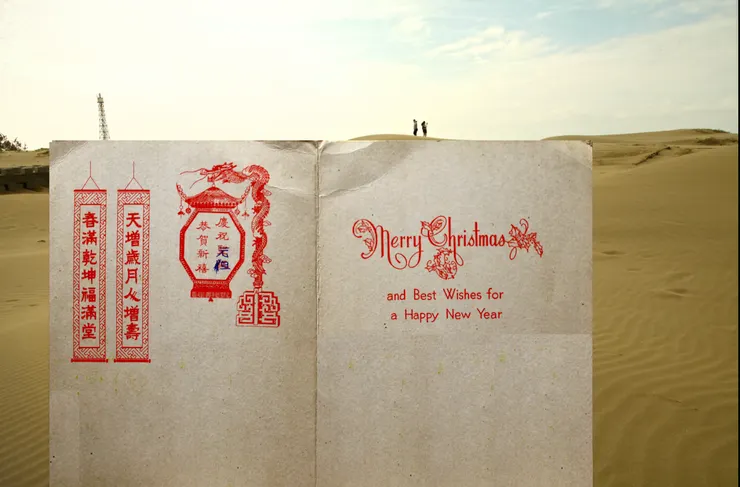 天增歲月人增壽
春滿乾坤福滿堂
慶祝
恭賀新禧
Merry Christmas
and Best Wishes for
a Happy New Year